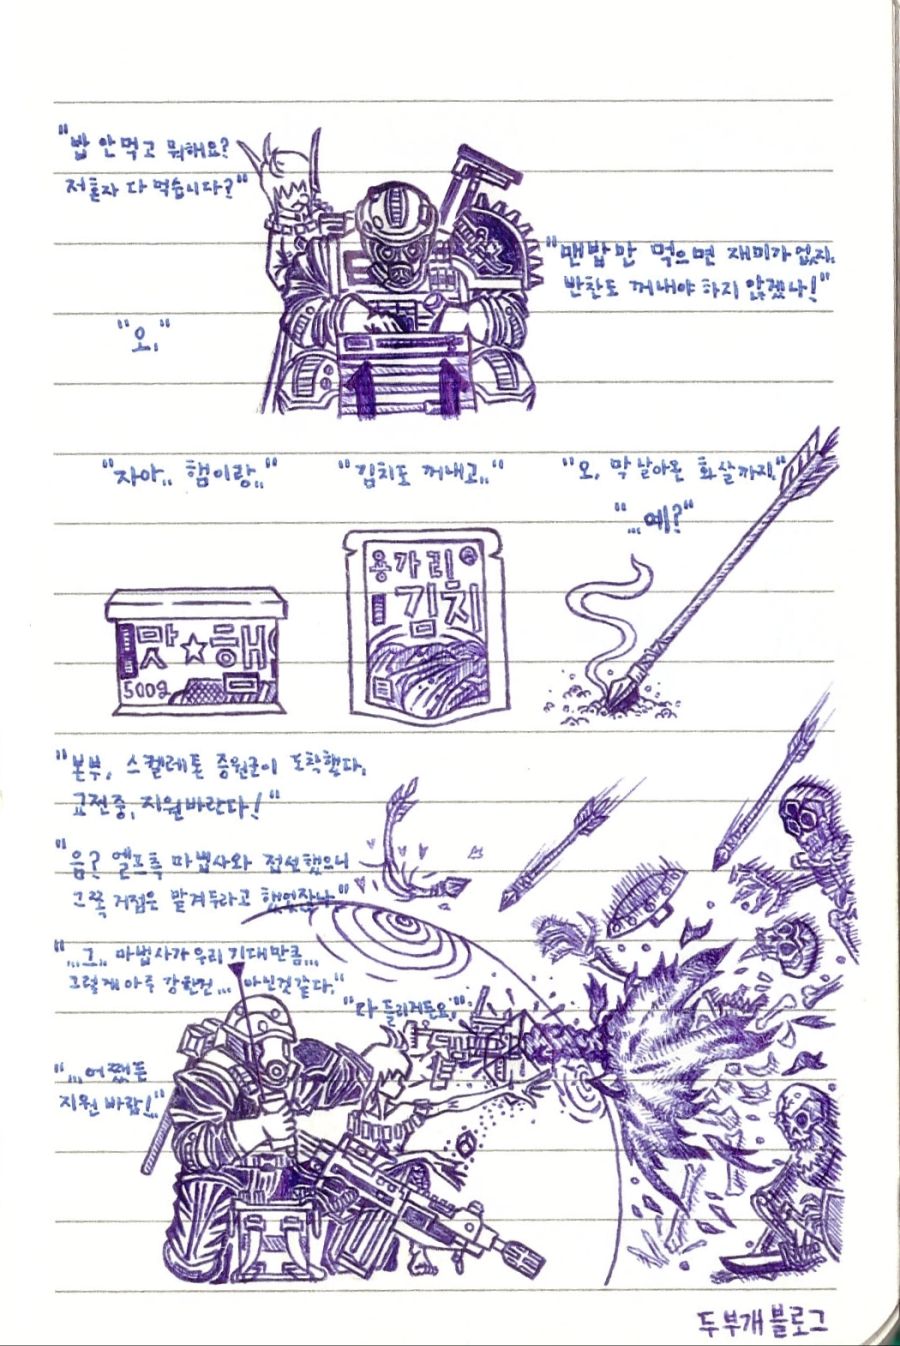 "밥 안먹고 뭐해요?
저혼자 다 먹습니다?"
"맨밥만 먹으면 재미가 없지.
반찬도 꺼내야 하지 않겠나!"
"오."
"자아.. 햄이랑.."
"김치도 꺼내고.."
"오, 막 날아온 화살까지."
"...예?"
맛☆해
500g
용가리
김치
"본부, 스켈레톤 증원군이 도착했다.
교전중, 지원바란다!"
"음? 엘프측 마법사와 접선했으니
그쪽 거점은 맡겨두라고 했었잖나."
"...그.. 마법사가 우리 기대만큼...
그렇게 아주 강한건... 아닌것같다."
"다 들리거든요."
"...어쨌든
지원 바람!"
두부개블로그